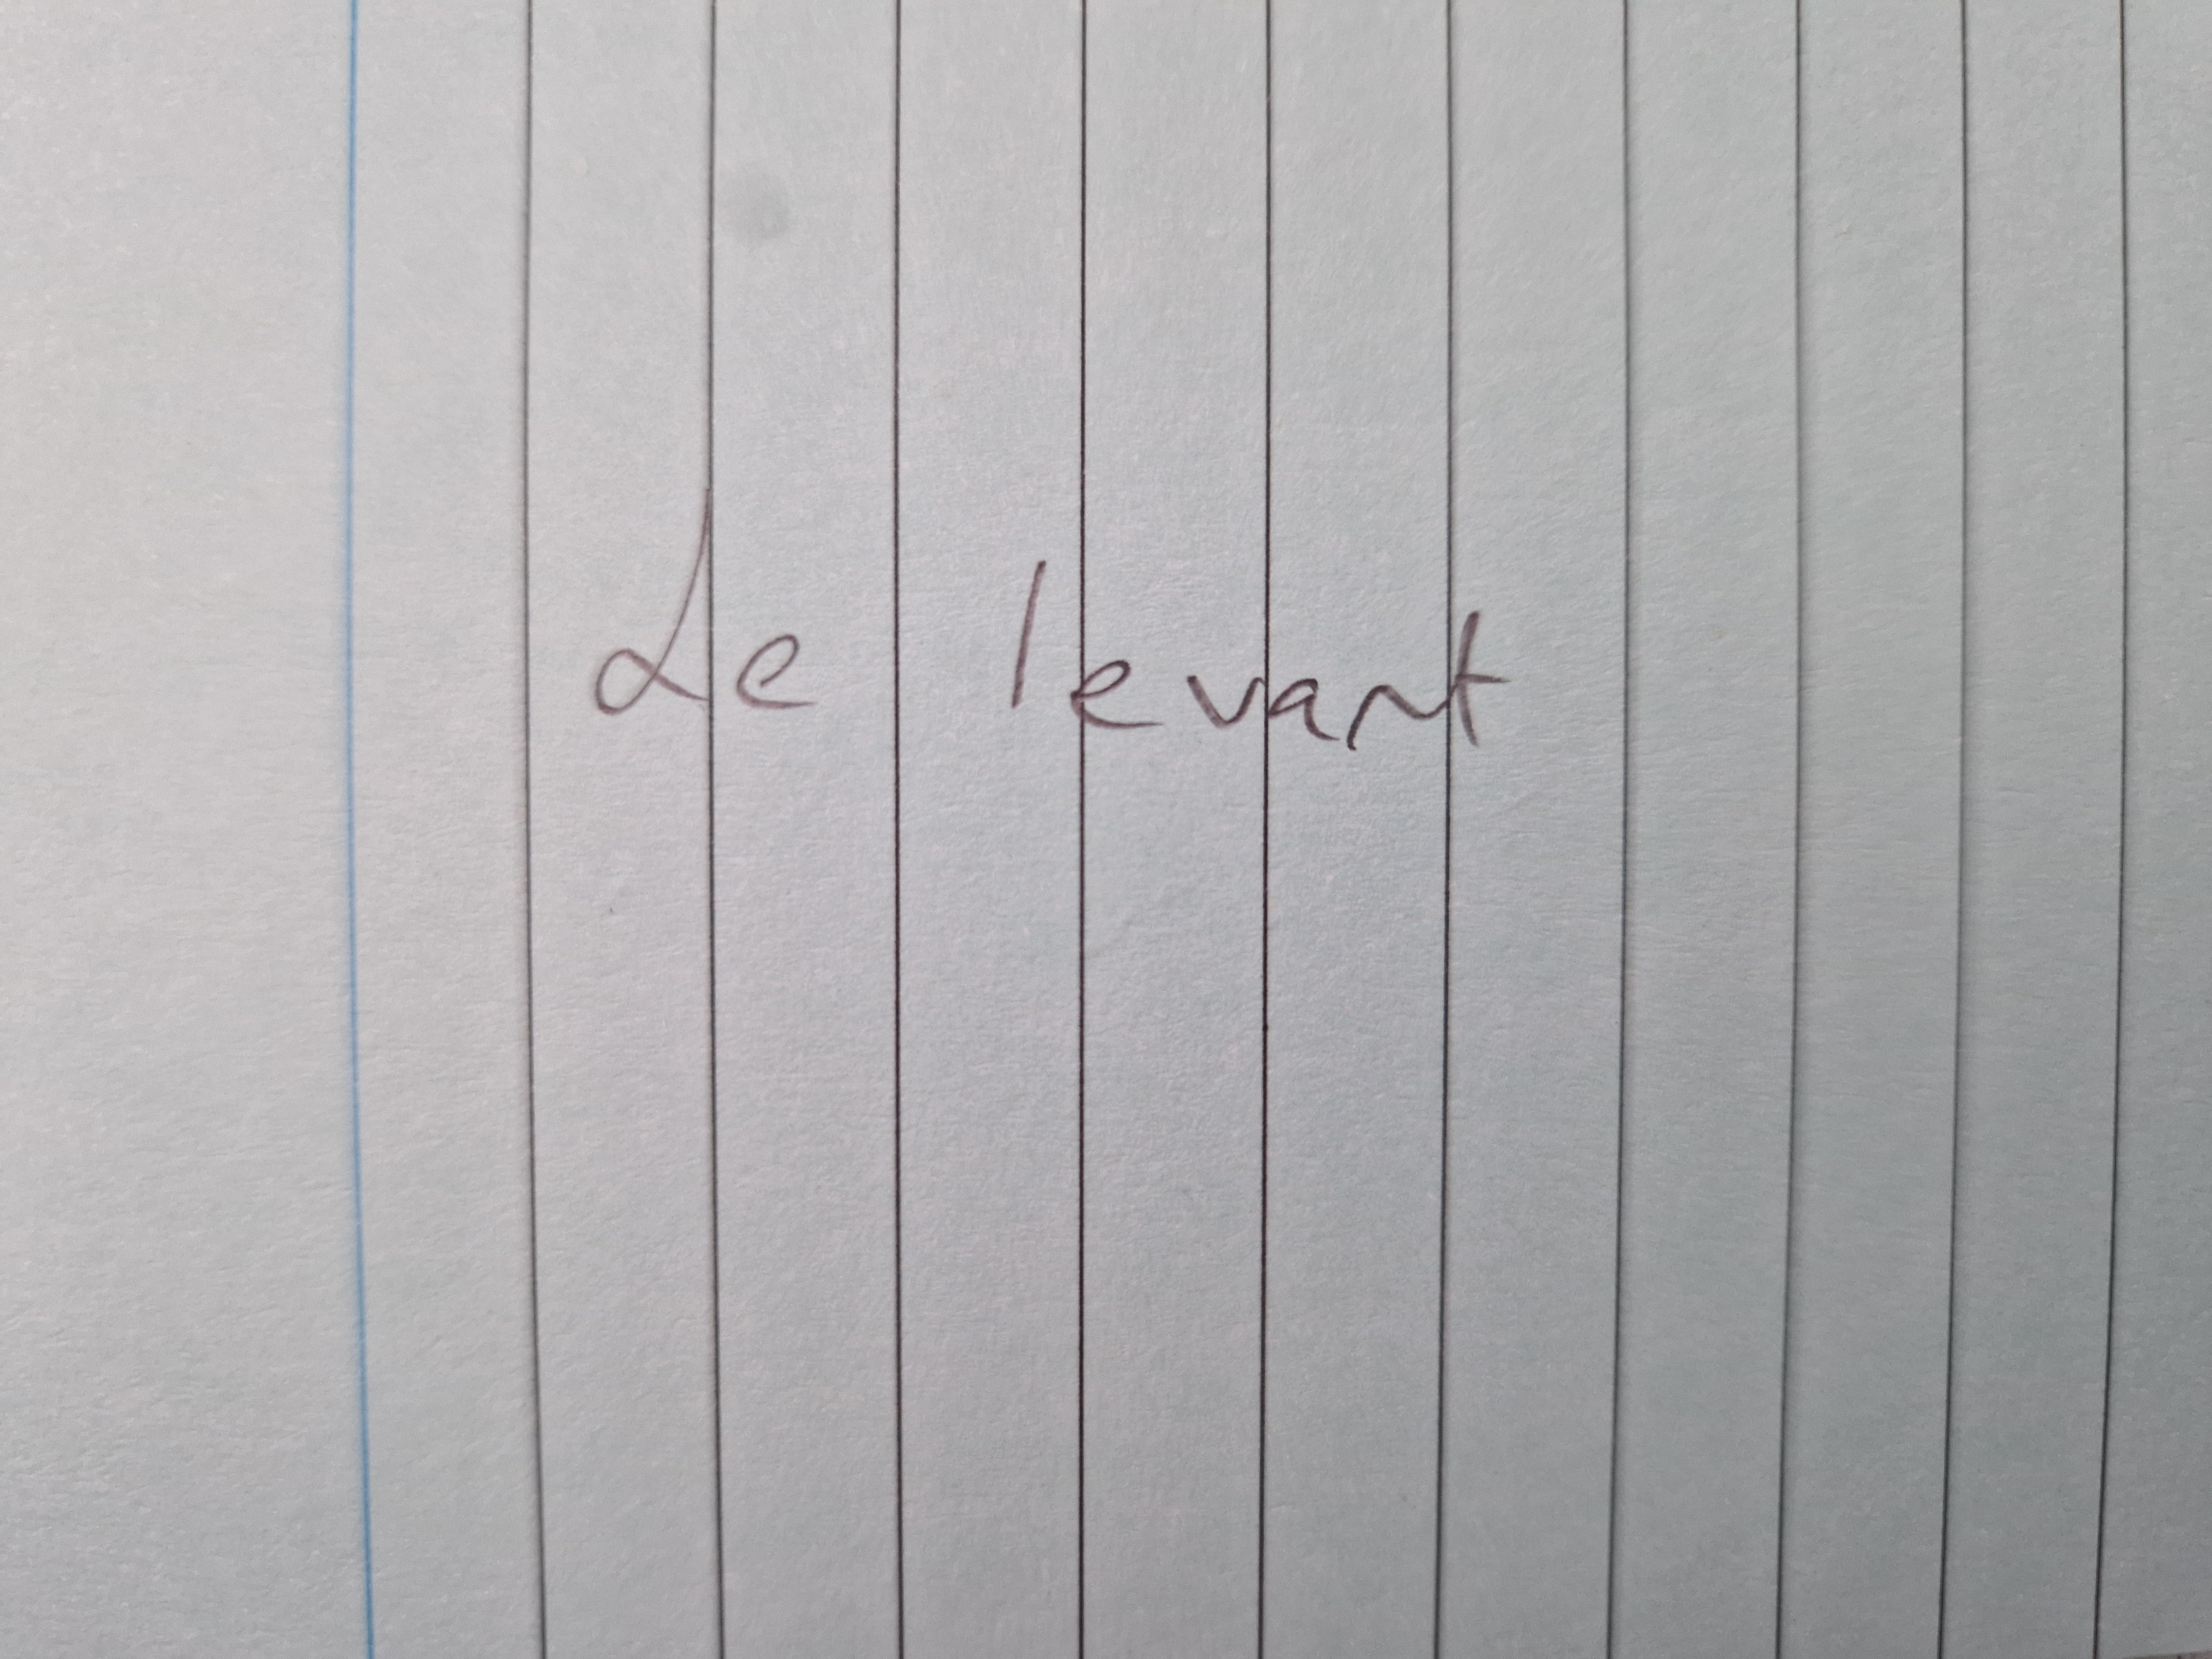 de levant